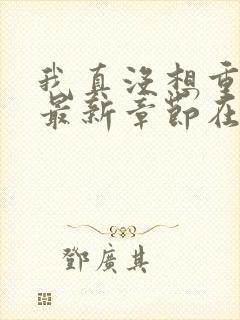 我真没想重
最新章節在
鄧廣其